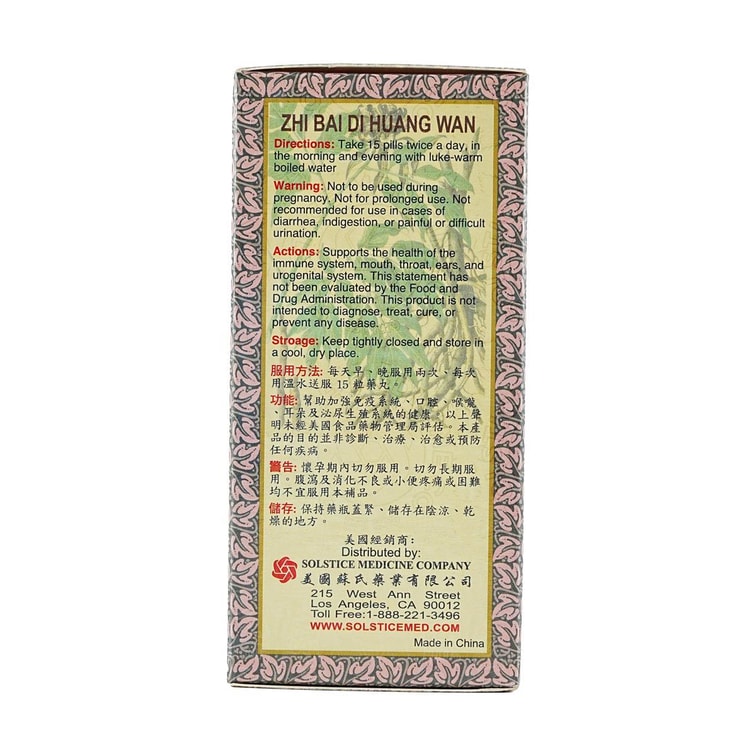 ZHI BAI DI HUANG WAN
Directions: Take 15 pills twice a day, in
the morning and evening with luke-warm
boiled water
Warning: Not to be used during
pregnancy. Not for prolonged use. Not
recommended for use in cases of
diarrhea, indigestion, or painful or difficult
urination.
Actions: Supports the health of the
immune system, mouth, throat, ears, and
urogenital system. This statement has
not been evaluated by the Food and
Drug Administration. This product is not
intended to diagnose, treat, cure, or
prevent any disease.
Stroage: Keep tightly closed and store in
a cool, dry place.
服用方法: 每天早、晚服用兩次、每次
用溫水送服 15 粒藥丸。
功能: 幫助加強免疫系統、口腔、喉嚨
、耳朵及泌尿生殖系統的健康。以上聲
明未經美國食品藥物管理局評估。本產
品的目的並非診斷、治療、治愈或預防
任何疾病。
警告: 懷孕期內切勿服用。切勿長期服
用。腹瀉及消化不良或小便疼痛或困難
均不宜服用本補品。
儲存: 保持藥瓶蓋緊、儲存在陰涼、乾
燥的地方。
美國經銷商:
Distributed by:
SOLSTICE MEDICINE COMPANY
美國蘇氏藥業有限公司
215 West Ann Street
Los Angeles, CA 90012
Toll Free:1-888-221-3496
WWW.SOLSTICEMED.COM
Made in China